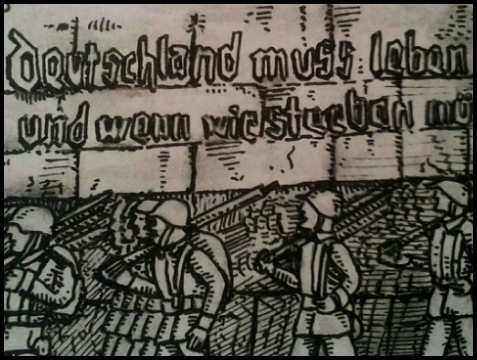 Deutschland muss leben
und wenn wir sterben mü